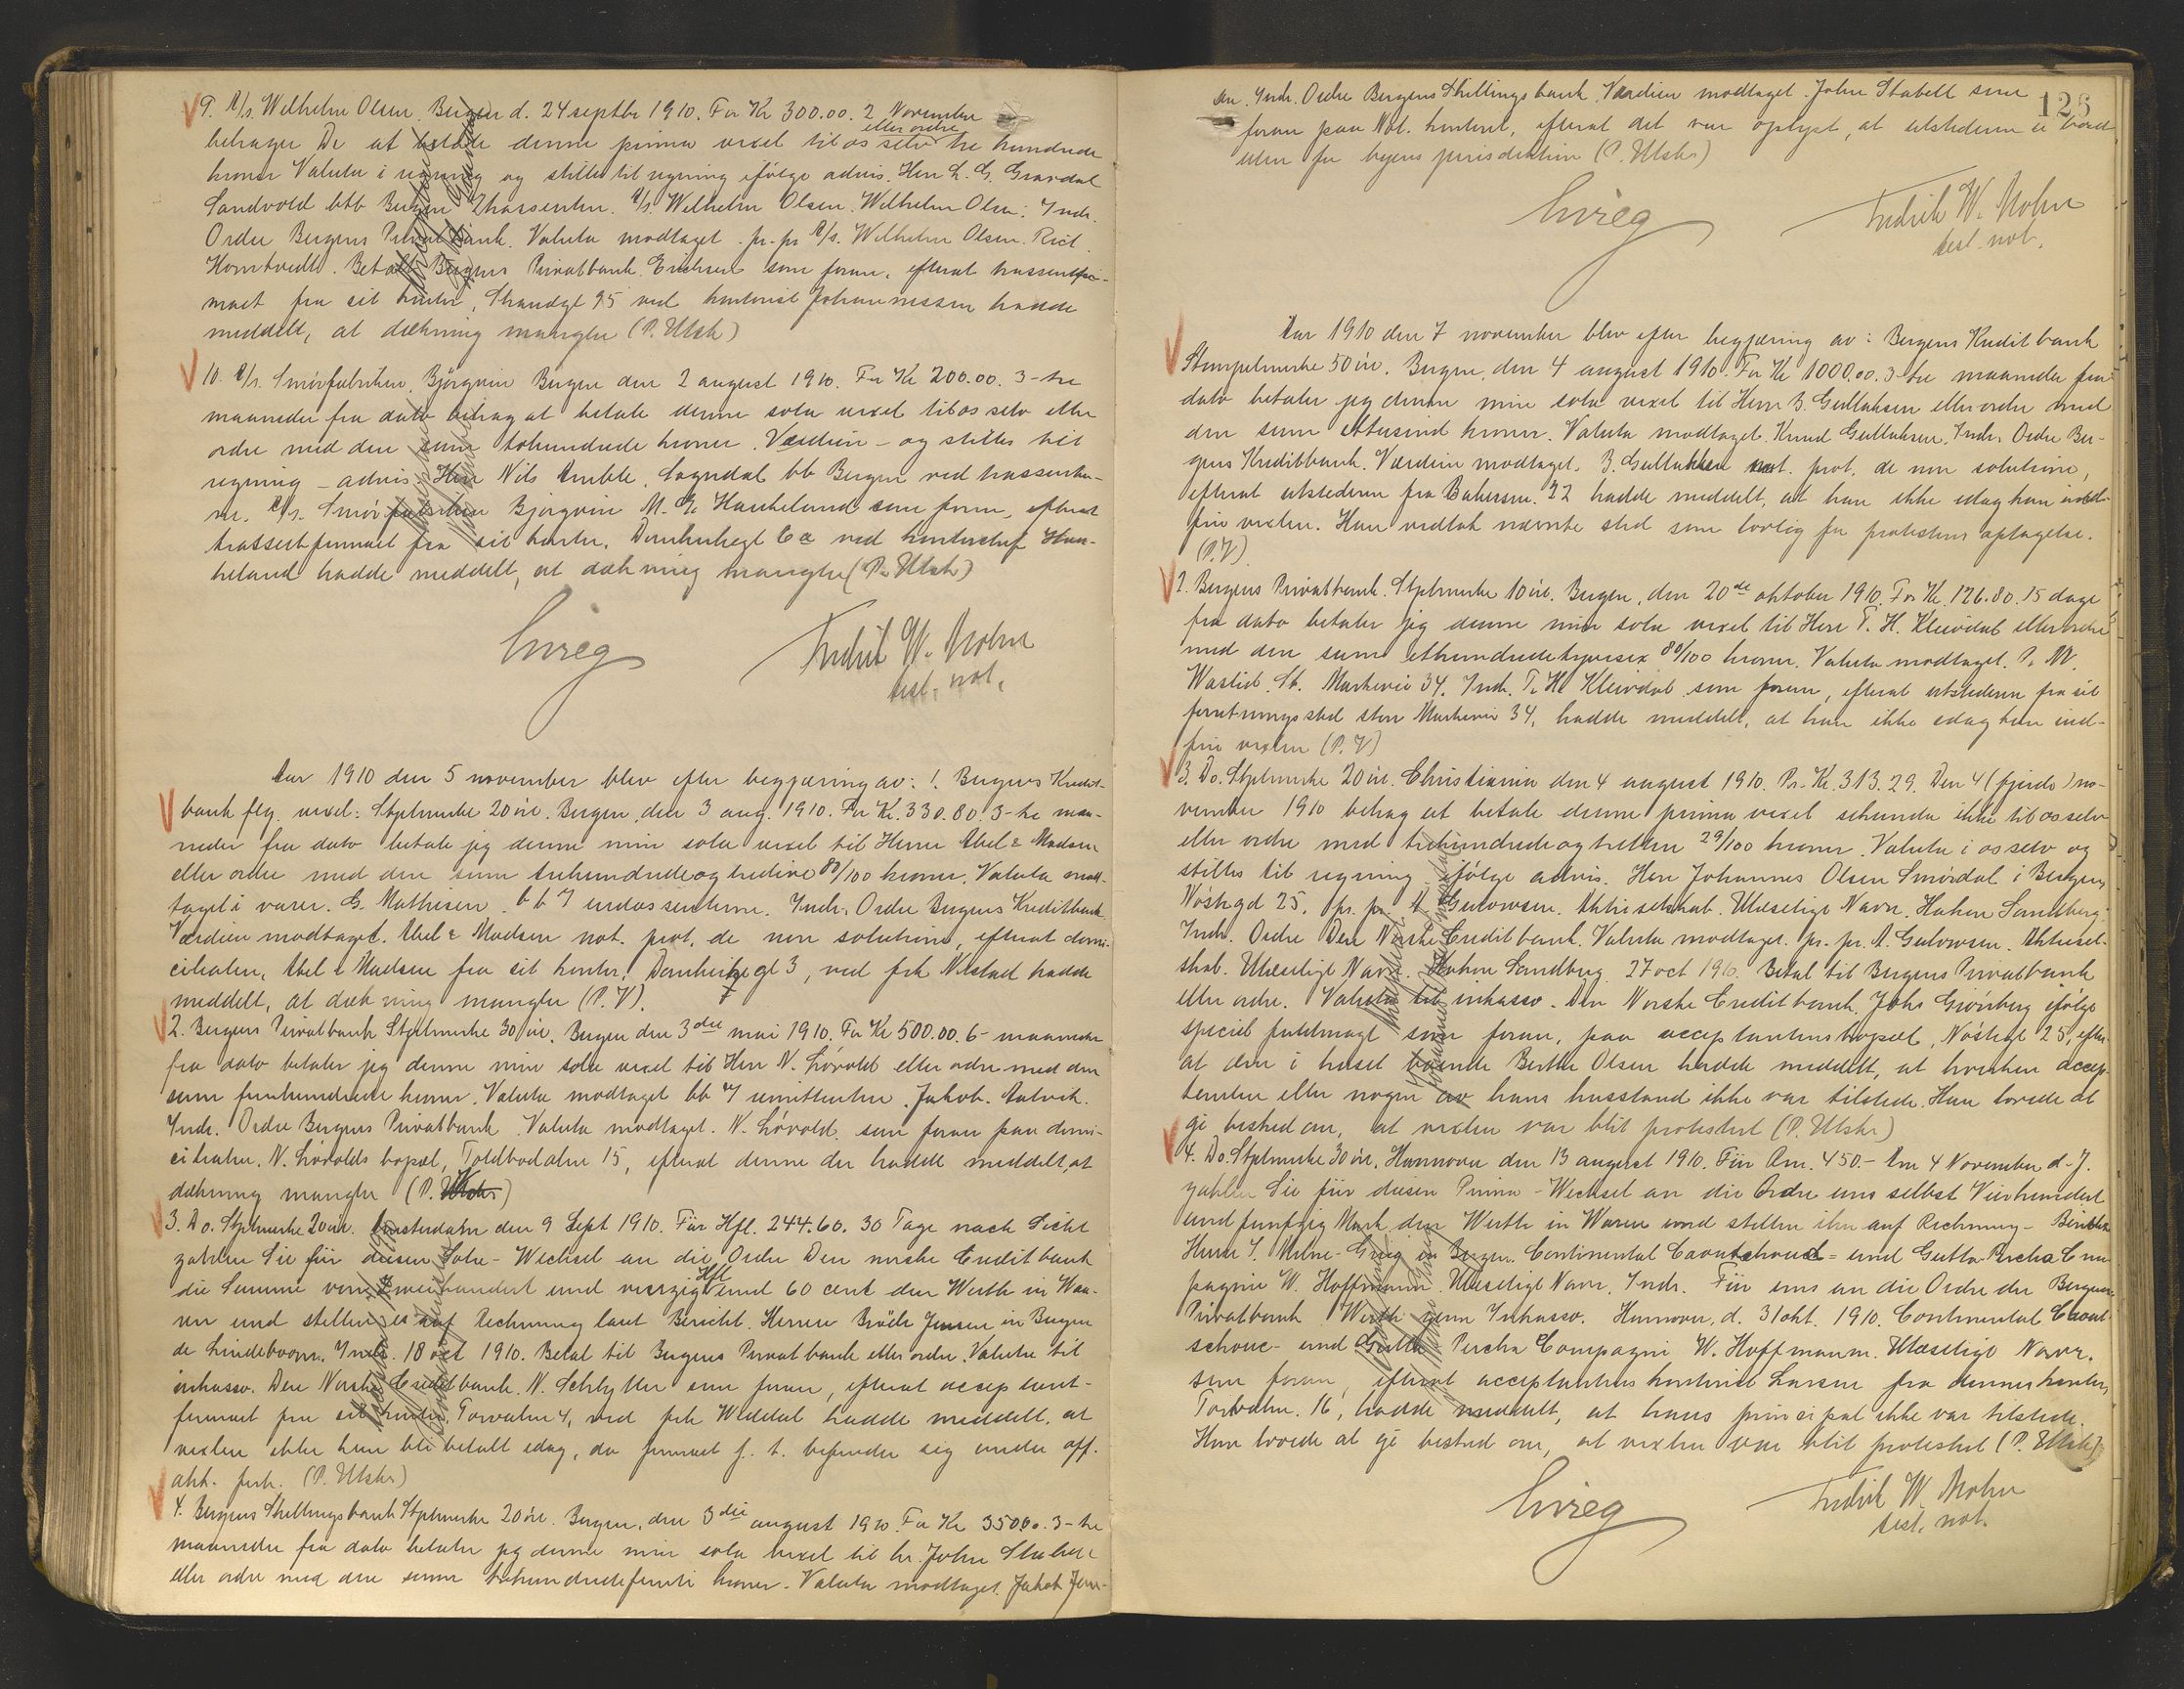 9. A/s. Wilhelm Olsen. Bergen d. 24 septbr 1910. For Kr 300.00. 2 November
behager De at betale denne prima vexel til os selv eller ordre tre hundrede
kroner Valuta i regning og stilles til regning ifølge advis. Herr L. G. Gravdal
Sandvold btb Bergen Trassenten. A/s. Wilhelm Olsen. Wilhelm Olsen. Indr.
Ordre Bergens Privatbank. Valuta modtaget. pr. pr A/s. Wilhelm Olsen. Rich.
Bergens Privatbank. Erichsen som foran, efterat trassentfir-
maet fra sit kontor, Strandgt 95 ved kontorist Johannessen hadde
meddelt, at dækning mangler (P. Utskr)
10. A/s. Smörfabriken Björgvin Bergen den 2 august 1910. For Kr 200.00. 3-tre
maaneder fra dato behag at betale denne sola vexel til os selv eller
ordre med den sum tohundrede kroner. Værdien - og stilles til
regning - advis. Herr Nils Amble, Sogndal bb Bergen ved trassente-
ne. A/s. Smörfabriken Björgvin M. G. Haukeland som foran, efterat
trassentfirmaet fra sit kontor, Domkirkegt 6a ved kontorchef Hau-
keland hadde meddelt, at dækning mangler (P. Utskr)
Fredrik W. Mohn
kst. not.
Aar 1910 den 5 november blev efter begjæring av: 1. Bergens Kredit-
bank flg. vexel: Stplmerke 20 öre. Bergen, den 3 aug. 1910. For Kr. 330.80. 3-tre maa-
neder fra dato betaler jeg denne min sola vexel til Herrer Abel & Madsen
eller ordre med den sum trehundredeogtredive 80/100 kroner. Valuta mod-
taget i varer. G. Mathisen. b b 7 endossenterne. Indr. Ordre Bergens Kreditbank.
Værdien modtaget. Abel & Madsen not. prot. de non solutione, efterat domi-
ciliaten, Abel & Madsen fra sit kontor, Domkirkegt 3, ved frk Nilstad hadde
meddelt, at dækning mangler (P. V).
2. Bergens Privatbank Stplmerke 30 öre. Bergen den 3die mai 1910. For Kr 500.00. 6- maaneder
fra dato betaler jeg denne min sola vexel til Herr N. Lövold eller ordre med den
sum femhundrede kroner. Valuta modtaget bb 7 remittenten. Jakob Aatvik.
Indr. Ordre Bergens Privatbank. Valuta modtaget. N. Lövold. som foran paa domi-
ciliaten, N. Lövolds bopæl, Toldbodalm 15, efterat denne der hadde meddelt, at
dækning mangler (P. Utskr)
3. Do. Stplmerke 20 öre. Amsterdam den 9 Sept 1910. Für Hfl. 244.60. 30 Tage nach Sicht
zahlen Sie für diesen Sola-Wechsel an die Ordre Den norske Creditbank
die Summe von Zweihundert und vierzig Hfl und 60 cent den Werth in Waa-
ren und stellen es auf Rechnung laut Bericht. Herren Bröchr Jensen in Bergen
de Lindeboom. Indr. 18 oct 1910. Betal til Bergens Privatbank eller ordre. Valuta til
inkasso. Den Norske Creditbank. N. Schlytter som foran, efterat acceptant-
firmaet fra sit kontor, Torvalm 4, ved frk Weddal hadde meddelt, at
vexlen ikke kan bli betalt idag, da firmaet f. t. befinder sig under off.
akk. forh. (P. Utskr)
4. Bergens Skillingsbank Stplmerke 20 öre. Bergen, den 3die august 1910. For Kr 350.00. 3-tre
maaneder fra dato betaler jeg denne min sola vexel til hr. John Stabell
eller ordre med den sum trehundredefemti kroner. Valuta modtaget. Jakob Jen-
126
sen. Indr. Ordre Bergens Skillingsbank. Værdien modtaget. John Stabell som
foran paa Not. kontoret, efterat det var oplyst, at utstederen er bosat
uten for byens jurisdiktion (P. Utskr)
Fredrik W. Mohn
kst. not.
Aar 1910 den 7 november blev efter begjæring av: Bergens Kreditbank
Stempelmerke 50 öre. Bergen, den 4 august 1910. For Kr 1000.00. 3-tre maaneder fra
dato betaler jeg denne min sola vexel til Herr B. Gullaksen eller ordre med
den sum ettusind kroner. Valuta modtaget. Knud Gullaksen. Indr. Ordre Ber-
gens Kreditbank. Værdien modtaget. B. Gullaksen not. prot. de non solutione,
efterat utstederen fra 22 hadde meddelt, at han ikke idag kan ind-
fri vexlen. Han vedtok nævnte sted som lovlig for protestens optagelse.
(P. V)
2. Bergens Privatbank. Stplmerke 10 öre. Bergen, den 20de oktober 1910. For Kr. 126.80. 15 dage
fra dato betaler jeg denne min sola vexel til Herr T. H. Kleivdal eller ordre
med den sum ethundredetyvesex 80/100 kroner. Valuta modtaget. P. M.
Wastid. St. Markevei 34. Indr. T. H. Kleivdal som foran, efterat utstederen fra sit
forretningssted store Markevei 34, hadde meddelt, at han ikke idag kan ind-
fri vexlen (P. V)
3. Do. Stplmerke 20 öre. Christiania den 4 august 1910. Pr. Kr. 313.29. Den 4 (fjerde) no-
vember 1910 behag at betale denne prima vexel sekunda ikke til os selv
eller ordre med trehundredeogtretten 29/100 kroner. Valuta i os selv og
stilles til regning ifølge advis. Herr Johannes Olsen Smördal i Bergen
Nöstegd 25. pr. pr. A Gulowsen. Aktieselskab. Ulæselige Navn. Haken Sandberg.
Indr. Ordre Den Norske Creditbank. Valuta modtaget. pr. pr. A. Gulowsen. Aktiesel-
skab. Ulæselige Navn. Haken Sandberg. 27 oct 1910. Betal til Bergens Privatbank
eller ordre. Valuta til inkasso. Den Norske Creditbank. Johs Grönberg ifølge
speciel fuldmagt som foran, paa acceptantens bopæl, Nöstegt 25, efter-
at den i huset boende Berthe Olsen hadde meddelt, at hverken accep-
tanten eller nogen av hans husstand ikke var tilstede. Hun lovede at
gi besked om, at vexlen var blit protestert (P. Utskr)
4. Do. Stplmerke 30 öre. Hannover den 13 august 1910. Für Rm. 450.- Am 4 November d. J.
zahlen Sie für diesen Prima-Wechsel an die Ordre uns selbst Vierhundert
und funfzig Mark den Werth in Waren und stellen ihn auf Rechnung -
Herrn J. Milne-Grieg in Bergen. Continental Caoutchouc- und Gutta-Percha Com-
pagnie W. Hoffmann. Ulæselige Navn. Indr. Für uns an die Ordre der Bergens
Privatbank Werth zum Inkasso. Hannover, d. 31 okt. 1910. Continental Caout-
schouc- und Gutta Percha Compagni W. Hoffmann. Ulæselige Navn.
som foran, efterat acceptantens kontorist Larsen fra dennes kontor,
Torvalm. 16, hadde meddelt, at hans principal ikke var tilstede.
Han lovede at gi besked om, at vexlen var blit protestert (P. Utskr)
Fredrik W. Mohn
kst. not.